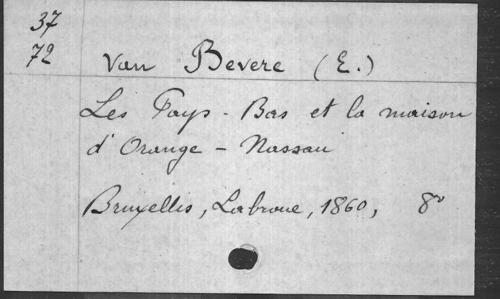 37
72
Van Bevere (E.)
Les Pays-Bas et la maison
d'Orange - Nassau
Bruxelles, Labroue, 1860, 8°